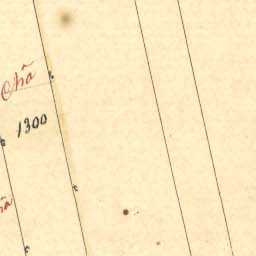 Chã
1300